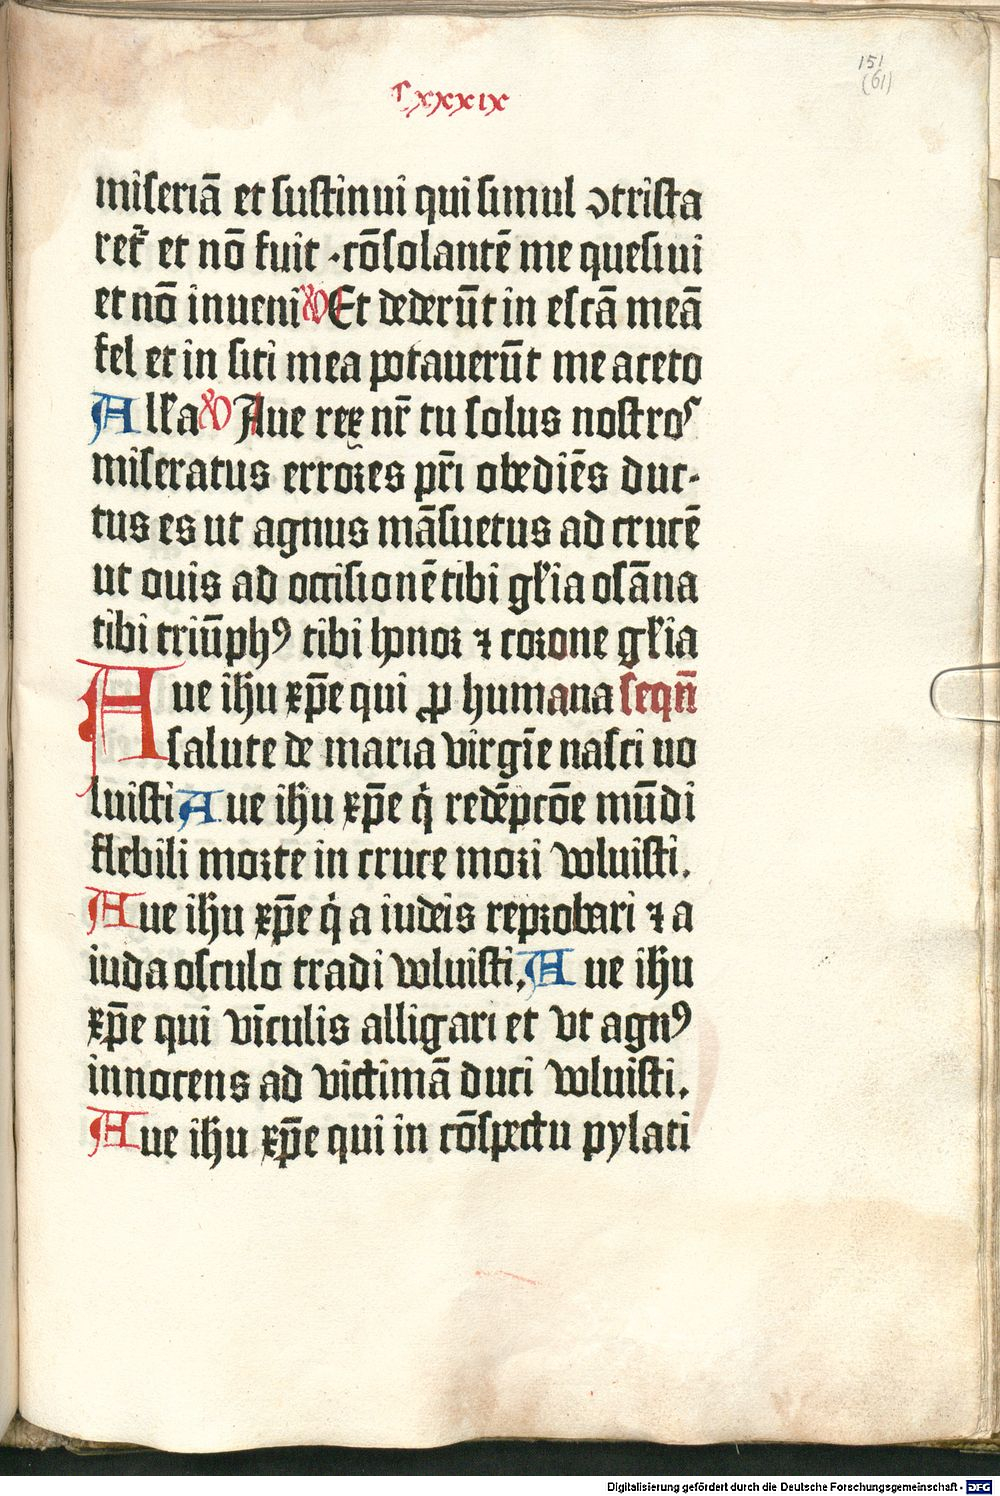 151
(61)
Cxxxix
miseriā et sustinui qui simul ↄtrista
ret᷑ et nō fuit · cōsolantē me quesiui
et nō inueni ℣ Et dederūt in escā meā
fel et in siti mea potauerūt me aceto
All'a ℣ Aue rex nr̄ tu solus nostroꝝ
miseratus errores pr̄i obediēs duc-
tus es ut agnus māsuetus ad crucē
ut ouis ad occisionē tibi gl'ia osāna
tibi triūphꝰ tibi honor ⁊ corone gl'ia
Aue ihu xp̄e qui ꝓ humana seqn̄
salute de maria virgīe nasci uo
luisti Aue ihu xp̄e q̇ redēpcōe mūdi
flebili morte in cruce mori voluisti.
Aue ihu xp̄e q̇ a iudeis reprobari ⁊ a
iuda osculo tradi voluisti, Aue ihu
xp̄e qui vīculis alligari et vt agnꝰ
innocens ad victimā duci voluisti.
Aue ihu xp̄e qui in cōspectu pylati
Digitalisierung gefördert durch die Deutsche Forschungsgemeinschaft - DFG